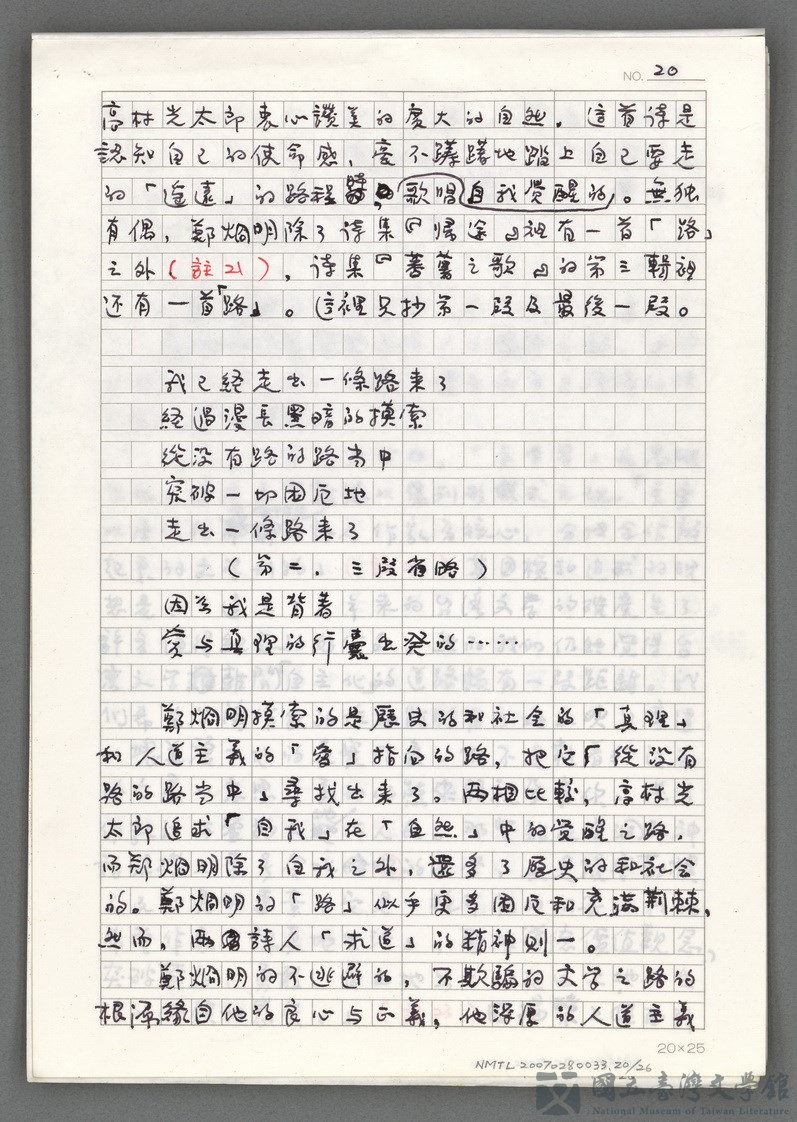 NO. 20
高村光太郎衷心讚美的廣大的自然。這首诗是
認知自己的使命感,毫不躊躇地踏上自己要走
的「遙遠」的路程時,歌唱自我覺醒的。無独
有偶,鄭烱明除了诗集『帰途』裡有一首「路」
之外(註21),诗集『蕃薯之歌』的第三輯裡
还有一首「路」。這裡只抄第一段及最後一段。
我已経走出一條路来了
経過漫長黑暗的摸索
從没有路的路当中
突破一切困厄地
走出一條路来了
(第二.三段省略)
因為我是背著
愛与真理的行囊出発的……
鄭烱明摸索的是歷史的和社会的「真理」
和人道主義的「愛」指向的路,把它「從没有
路的路当中」尋找出来了。两相比較,高村光
太郎追求「自我」在「自然」中的覚醒之路,
而郑烱明除了自我之外,還多了歷史的和社会
的。鄭烱明的「路」似乎更多困厄和充滿荆棘,
然而,两詩人「求道」的精神則一。
鄭烱明的不逃避的,不欺騙的文学之路的
根源緣自他的良心与正義,他深厚的人道主義
20×25
NMTL20070280033.20/26
國立臺灣文學館
National Museum of Taiwan Literature